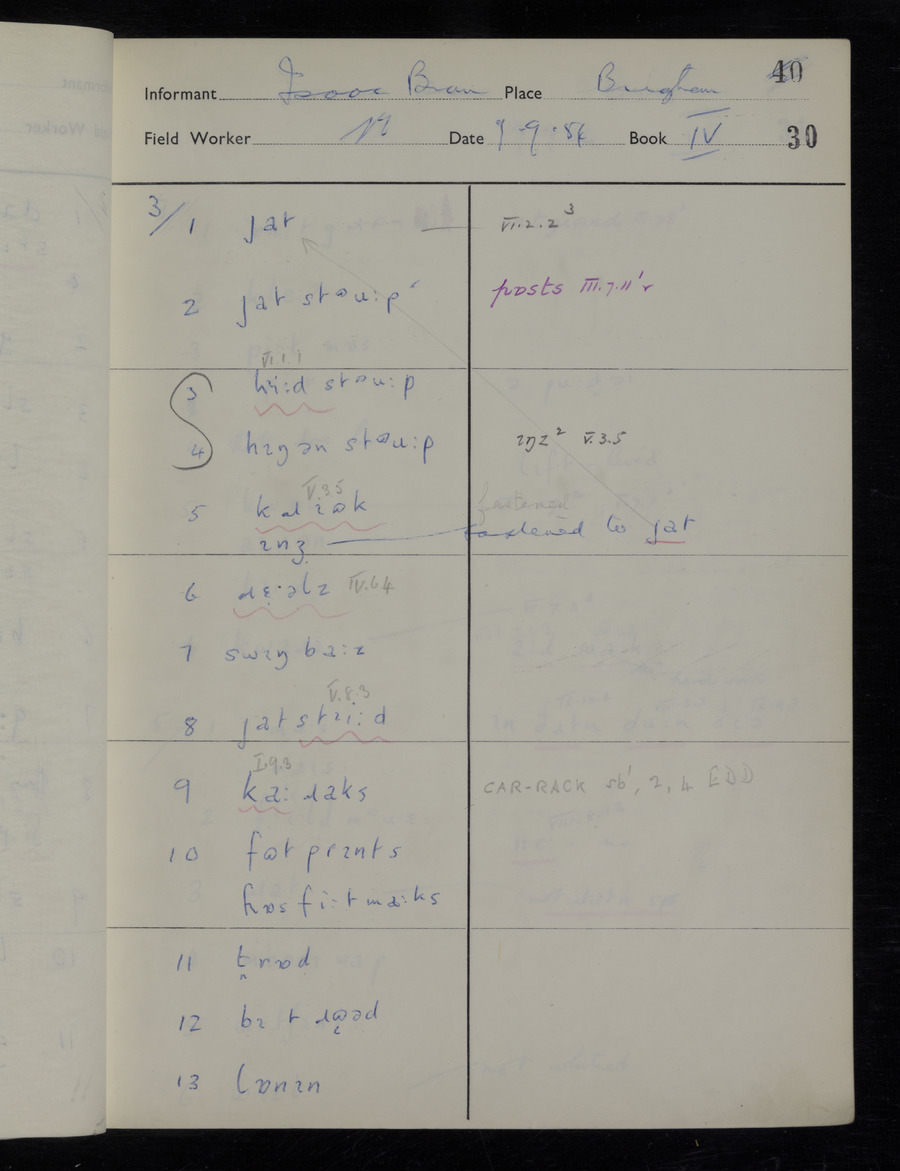 40
Informant Isaac Place Brigham
Field Worker Date 9.9.54 Book IV 30
3/1 jat VI.2.2³
2 jat stəu:p posts III.7.11'r
VI.1.1
3 hi:d stəu:p
4 hɪŋ ən stəu:p ɪŋz² V.3.5
V.3.5
5 fastened
fastened to jat
6 IV.6.4
7 swɪŋ ba:z
V.8.3
8 jat stɹi:d
I.9.3
9 ka: ɹaks CAR-RACK sb¹, 2, 4 EDD
10 fət prɪnts
hɒs fi:t ma:ks
11 t̪rɒd
12 bɪ t ɹɔəd
13 lɒnɪn